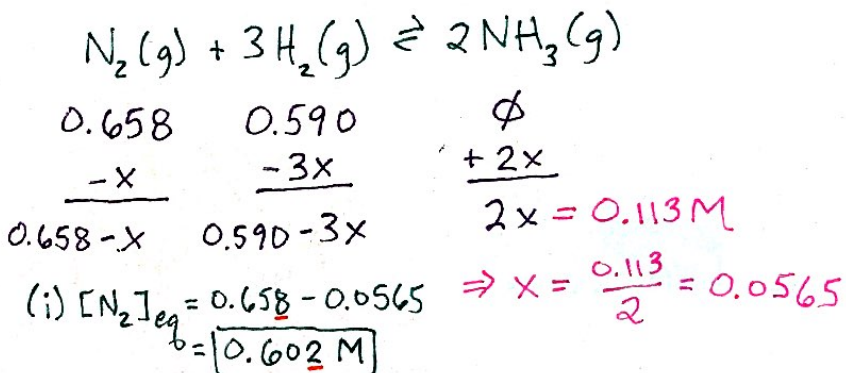 N₂(g) + 3H₂(g) ⇌ 2NH₃(g)
0.658 0.590 ∅
-x -3x +2x
0.658-x 0.590-3x 2x = 0.113M
(i) [N₂]eq = 0.658 - 0.0565 ⇒ x = 0.113/2 = 0.0565
= 0.602 M